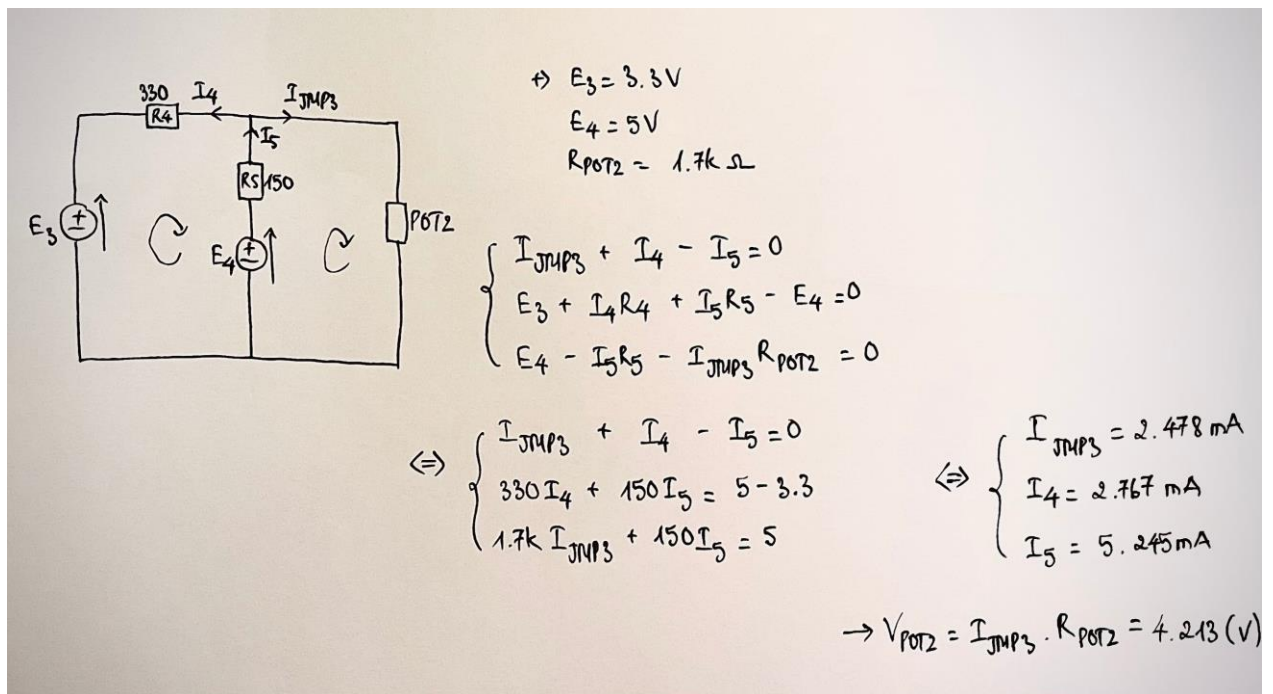 330 I4 I JMP3
R4
I5
R5 150
E3
E4
POT2
+) E3 = 3.3V
E4 = 5V
RPOT2 = 1.7k Ω
I JMP3 + I4 - I5 = 0
E3 + I4R4 + I5R5 - E4 = 0
E4 - I5R5 - I JMP3 RPOT2 = 0
<=> I JMP3 + I4 - I5 = 0
330 I4 + 150 I5 = 5 - 3.3
1.7k I JMP3 + 150 I5 = 5
<=> I JMP3 = 2.478 mA
I4 = 2.767 mA
I5 = 5.245 mA
→ VPOT2 = I JMP3 . RPOT2 = 4.213 (V)